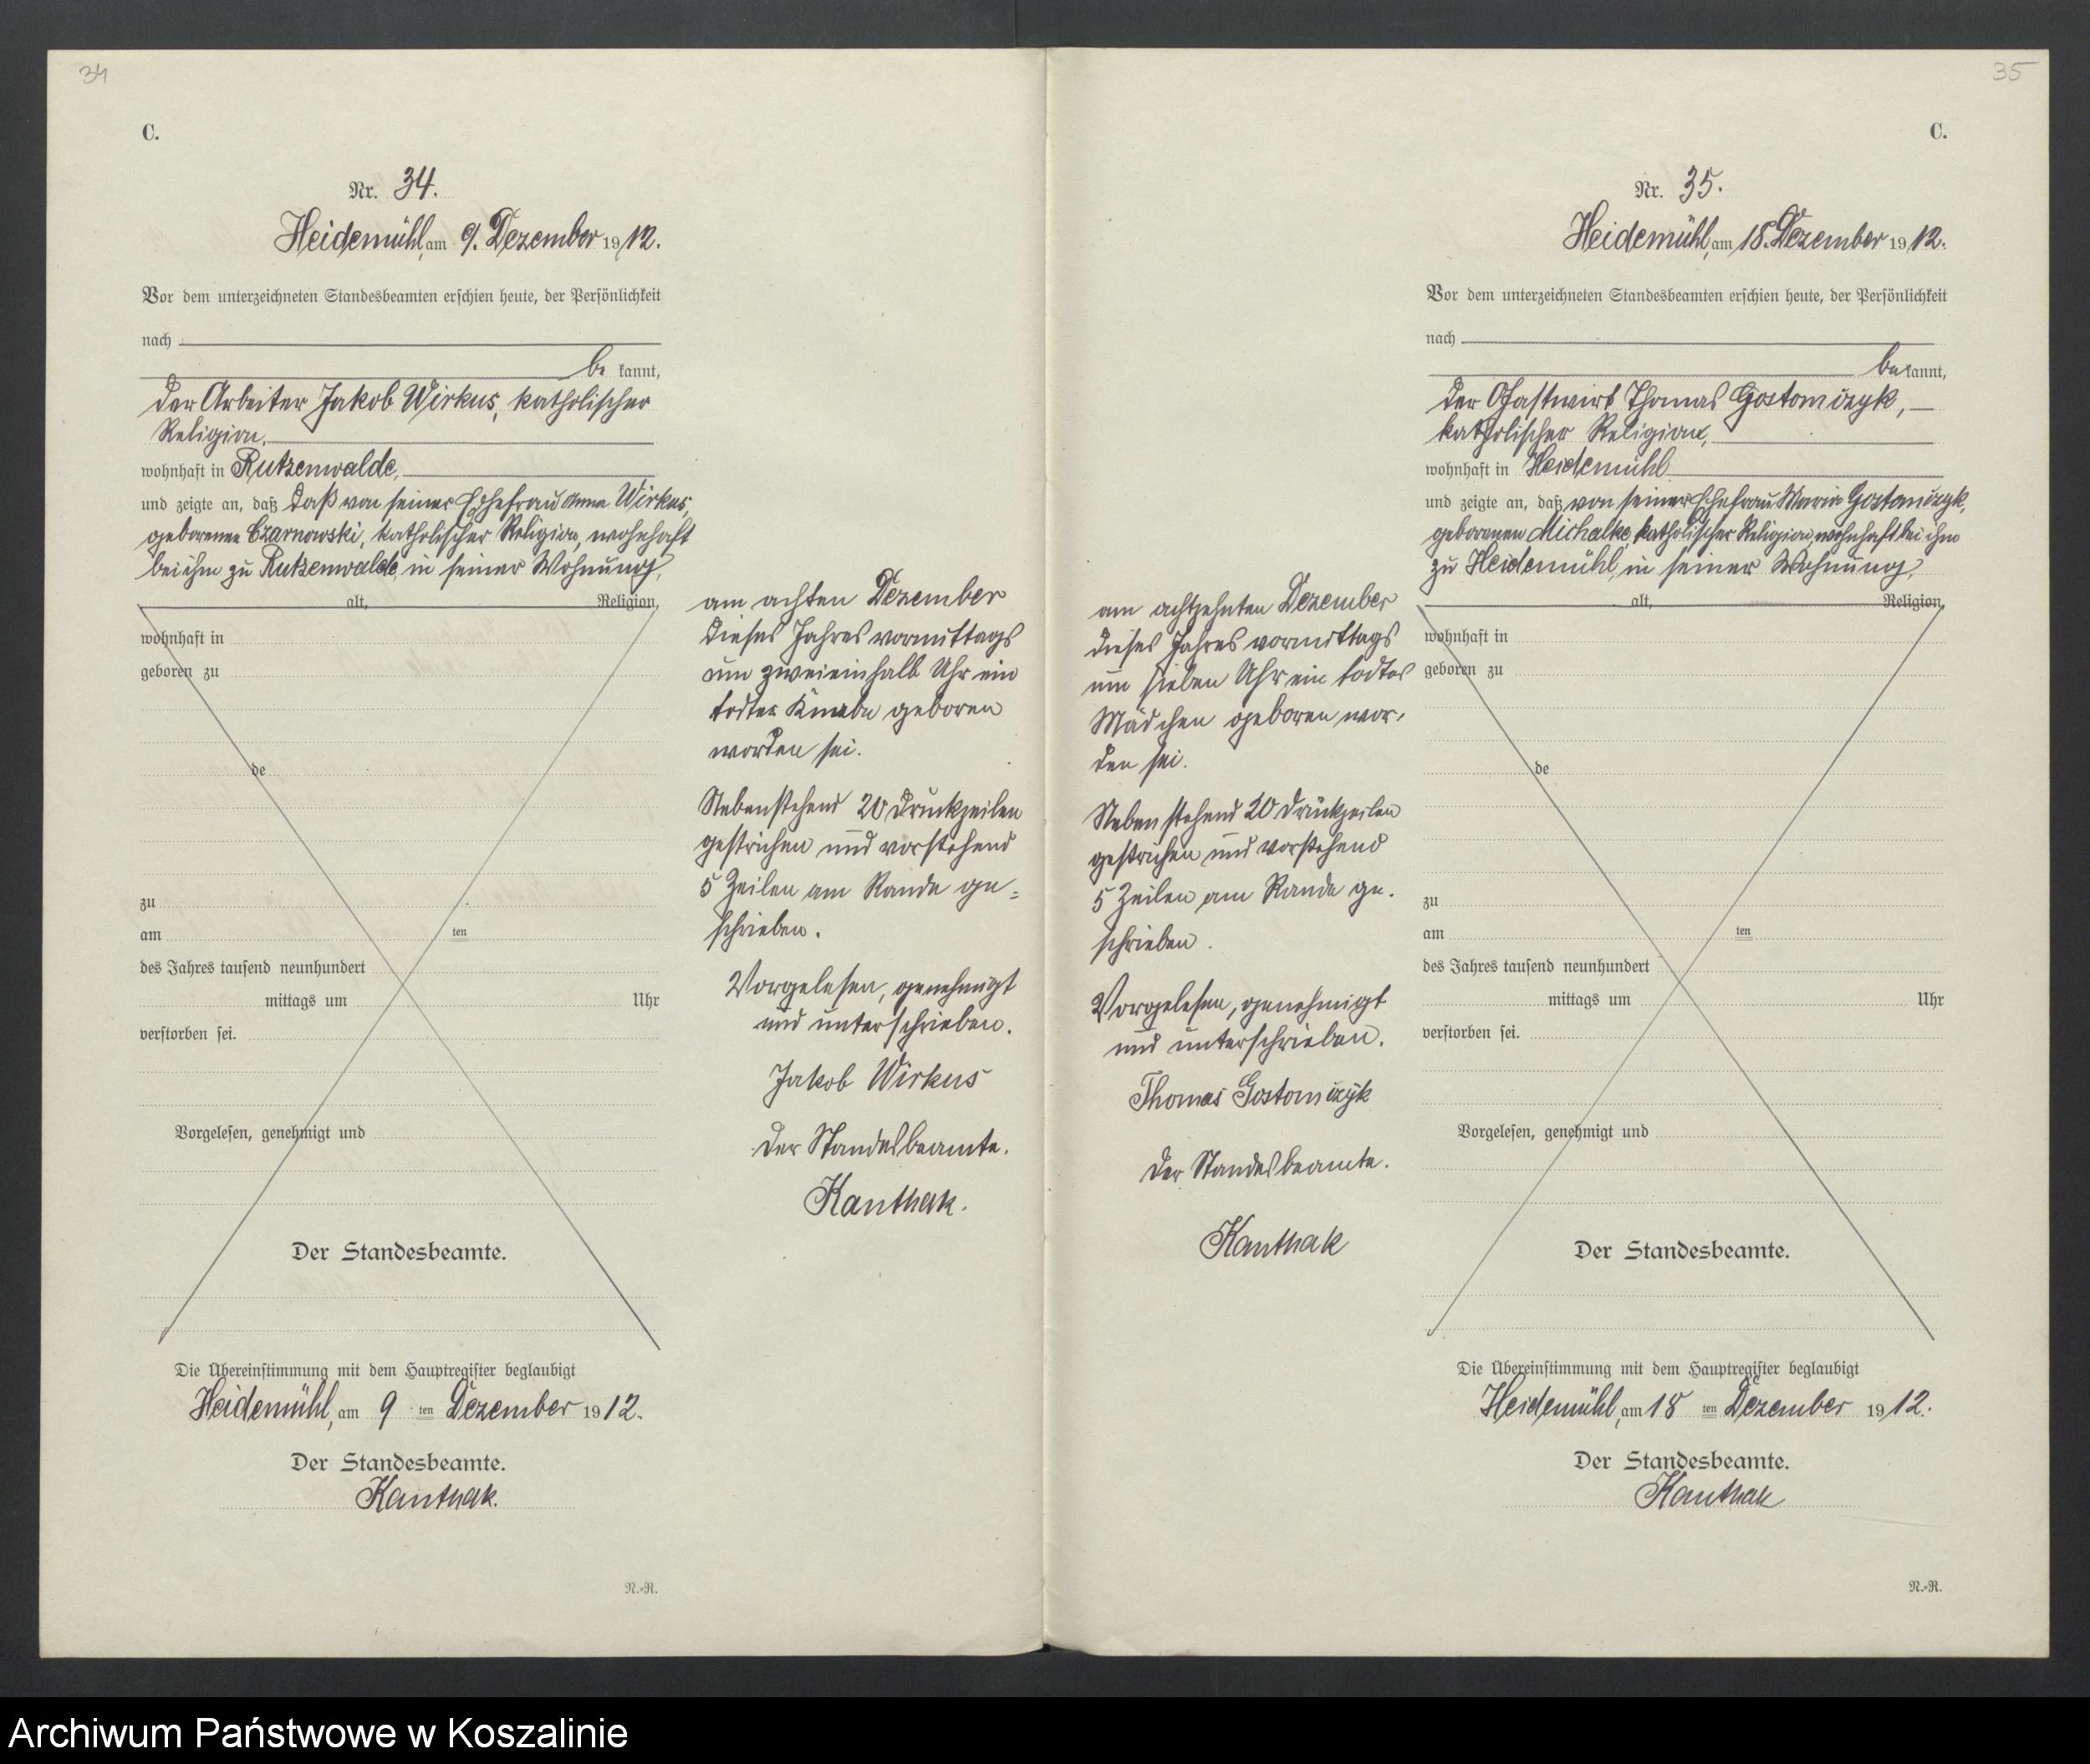 34
C.
Nr. 34.
Heidemühl, am 9. Dezember 1912.
Vor dem unterzeichneten Standesbeamten erschien heute, der Persönlichkeit
nach
be kannt,
der Arbeiter Jakob Wirkus, katholischer
Religion,
wohnhaft in Rutzenwalde,
und zeigte an, daß daß von seiner Ehefrau Anna Wirkus,
geborenen Czarnowski, katholischer Religion, wohnhaft
bei ihm zu Rutzenwalde, in seiner Wohnung,
alt, Religion,
wohnhaft in
geboren zu
de
zu
am ten
des Jahres tausend neunhundert
mittags um Uhr
verstorben sei.
Vorgelesen, genehmigt und
Der Standesbeamte.
am achten Dezember
dieses Jahres vormittags
um zweieinhalb Uhr ein
todter Knabe geboren
worden sei.
Nebenstehend 20 Druckzeilen
gestrichen und vorstehend
5 Zeilen am Rande ge=
schrieben.
Vorgelesen, genehmigt
und unterschrieben.
Jakob Wirkus
Der Standesbeamte.
Kanthak.
Die Übereinstimmung mit dem Hauptregister beglaubigt
Heidemühl, am 9 ten Dezember 1912.
Der Standesbeamte.
Kanthak.
N.-R.
35
C.
Nr. 35.
Heidemühl, am 18. Dezember 1912.
Vor dem unterzeichneten Standesbeamten erschien heute, der Persönlichkeit
nach
be kannt,
der Gastwirt Thomas Gostomczyk,
katholischer Religion,
wohnhaft in Heidemühl
und zeigte an, daß von seiner Ehefrau Maria Gostomczyk,
geborenen Michalke, katholischer Religion, wohnhaft bei ihm
zu Heidemühl, in seiner Wohnung,
alt, Religion,
wohnhaft in
geboren zu
de
zu
am ten
des Jahres tausend neunhundert
mittags um Uhr
verstorben sei.
Vorgelesen, genehmigt und
Der Standesbeamte.
am achtzehnten Dezember
dieses Jahres vormittags
um sieben Uhr ein todtes
Mädchen geboren wor-
den sei.
Nebenstehend 20 Druckzeilen
gestrichen und vorstehend
5 Zeilen am Rande ge-
schrieben.
Vorgelesen, genehmigt
und unterschrieben.
Thomas Gostomczyk
Der Standesbeamte.
Kanthak
Die Übereinstimmung mit dem Hauptregister beglaubigt
Heidemühl, am 18 ten Dezember 1912.
Der Standesbeamte.
Kanthak
N.-R.
Archiwum Państwowe w Koszalinie